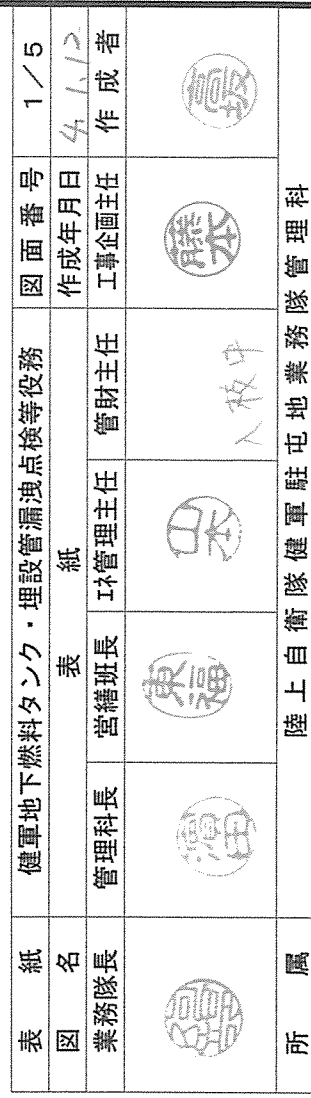 表紙 健軍地下燃料タンク・埋設管漏洩点検等役務 図面番号 1/5
図名 表紙 作成年月日 4.1.12
業務隊長 管理科長 営繕班長 エネ管理主任 管財主任 工事企画主任 作成者
東福 山本 入校中 藤本
所属 陸上自衛隊健軍駐屯地業務隊管理科